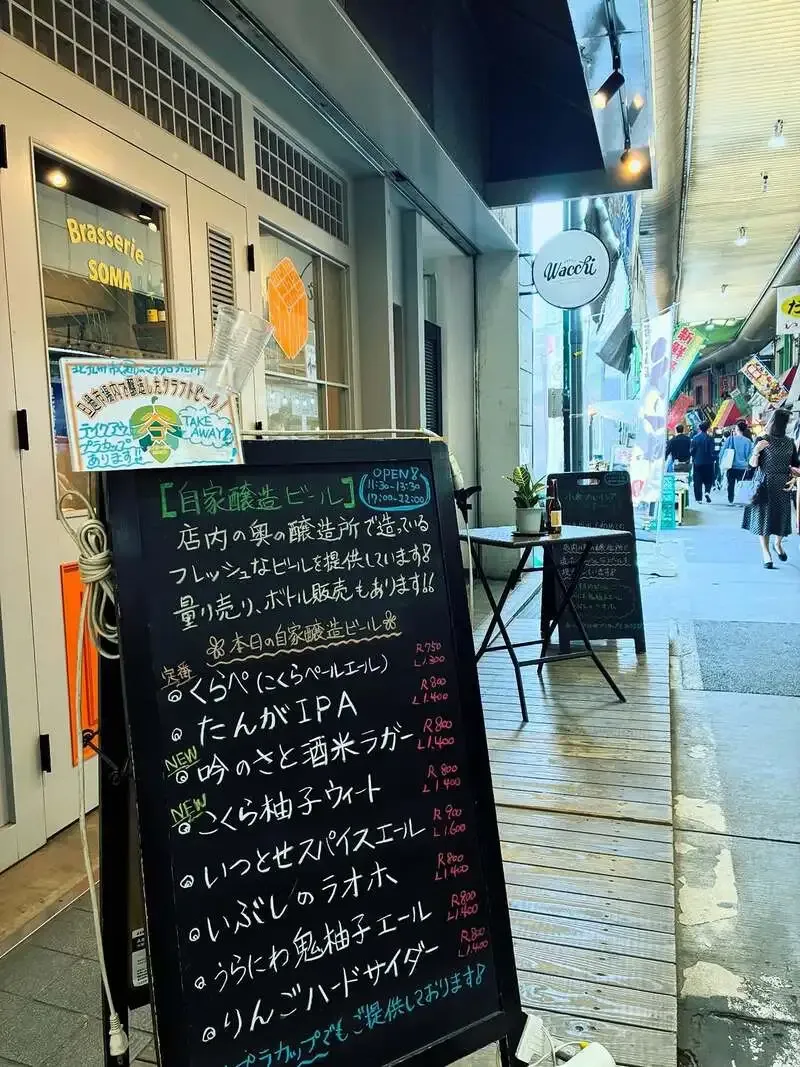 Brasserie
SOMA
Wacchi
TAKE
AWAY
テイクアウト
プラカップ
あります!!
OPEN
11:30-13:30
17:00-22:00
[自家醸造ビール]
店内の奥の醸造所で造っている
フレッシュなビールを提供しています
量り売り、ボトル販売もあります!!
本日の自家醸造ビール
定番
くらぺ(こくらペールエール)
R 750
L 1,300
たんがIPA
R 800
L 1,400
NEW
吟のさと酒米ラガー
R 800
L 1,400
NEW
こくら柚子ウィート
R 800
L 1,400
いつとせスパイスエール
R 900
L 1,600
いぶしのラオホ
R 800
L 1,400
うらにわ鬼柚子エール
R 800
L 1,400
りんごハードサイダー
R 800
L 1,400
プラカップでもご提供しております
新鮮